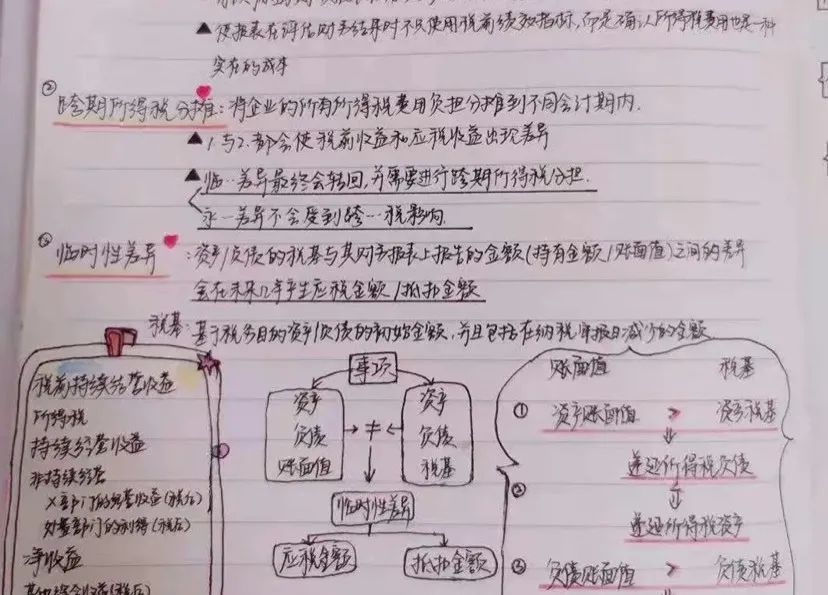 ▲使报表在评估财务结果时不只使用税前绩效指标,而是确认所得税费用也是一种
实在的成本
② 跨期所得税分摊:将企业的所有所得税费用负担分摊到不同会计期内.
▲1.与2.都会使税前收益和应税收益出现差异
▲临…差异最终会转回,并需要进行跨期所得税分担.
永…差异不会受到跨…税影响.
③ 临时性差异:资产/负债的税基与其财务报表上报告的金额(持有金额/账面值)之间的差异
会在未来几年产生应税金额/抵扣金额
税基:基于税务目的资产/负债的初始金额,并且包括在纳税申报日减少的金额
税前持续经营收益
所得税
持续经营收益
非持续经营
×部门的经营收益(税后)
处置部门的利得(税后)
净收益
其他综合收益(税后)
事项
资产
负债
账面值
→≠←
资产
负债
税基
临时性差异
应税金额
抵扣金额
账面值 税基
① 资产账面值 > 资产税基
⇓
递延所得税负债
② ⇓
递延所得税资产
③ 负债账面值 > 负债税基